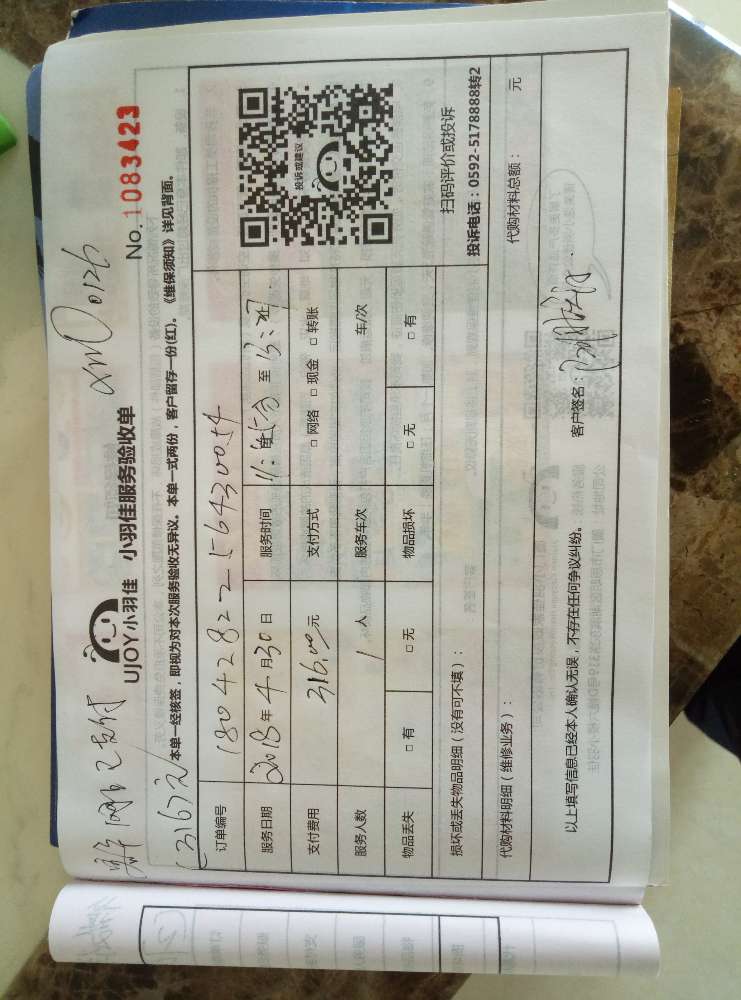 XMD0126
(316元)
UJOY小羽佳 小羽佳服务验收单
No.1083423
本单一经核签，即视为对本次服务验收无异议。本单一式两份，客户留存一份(红)。《维保须知》详见背面。
订单编号 1804282256430054
服务日期 2018年4月30日 服务时间 至
支付费用 316.00元 支付方式 □ 网络 □ 现金 □ 转账
服务人数 1人 服务车次 车/次
物品丢失 □ 有 □ 无 物品损坏 □ 无 □ 有
投诉或建议
扫码评价或投诉
投诉电话：0592-5178888转2
损坏或丢失物品明细（没有可不填）：
代购材料明细（维修业务）： 代购材料总额： 元
以上填写信息已经本人确认无误，不存在任何争议纠纷。 客户签名：